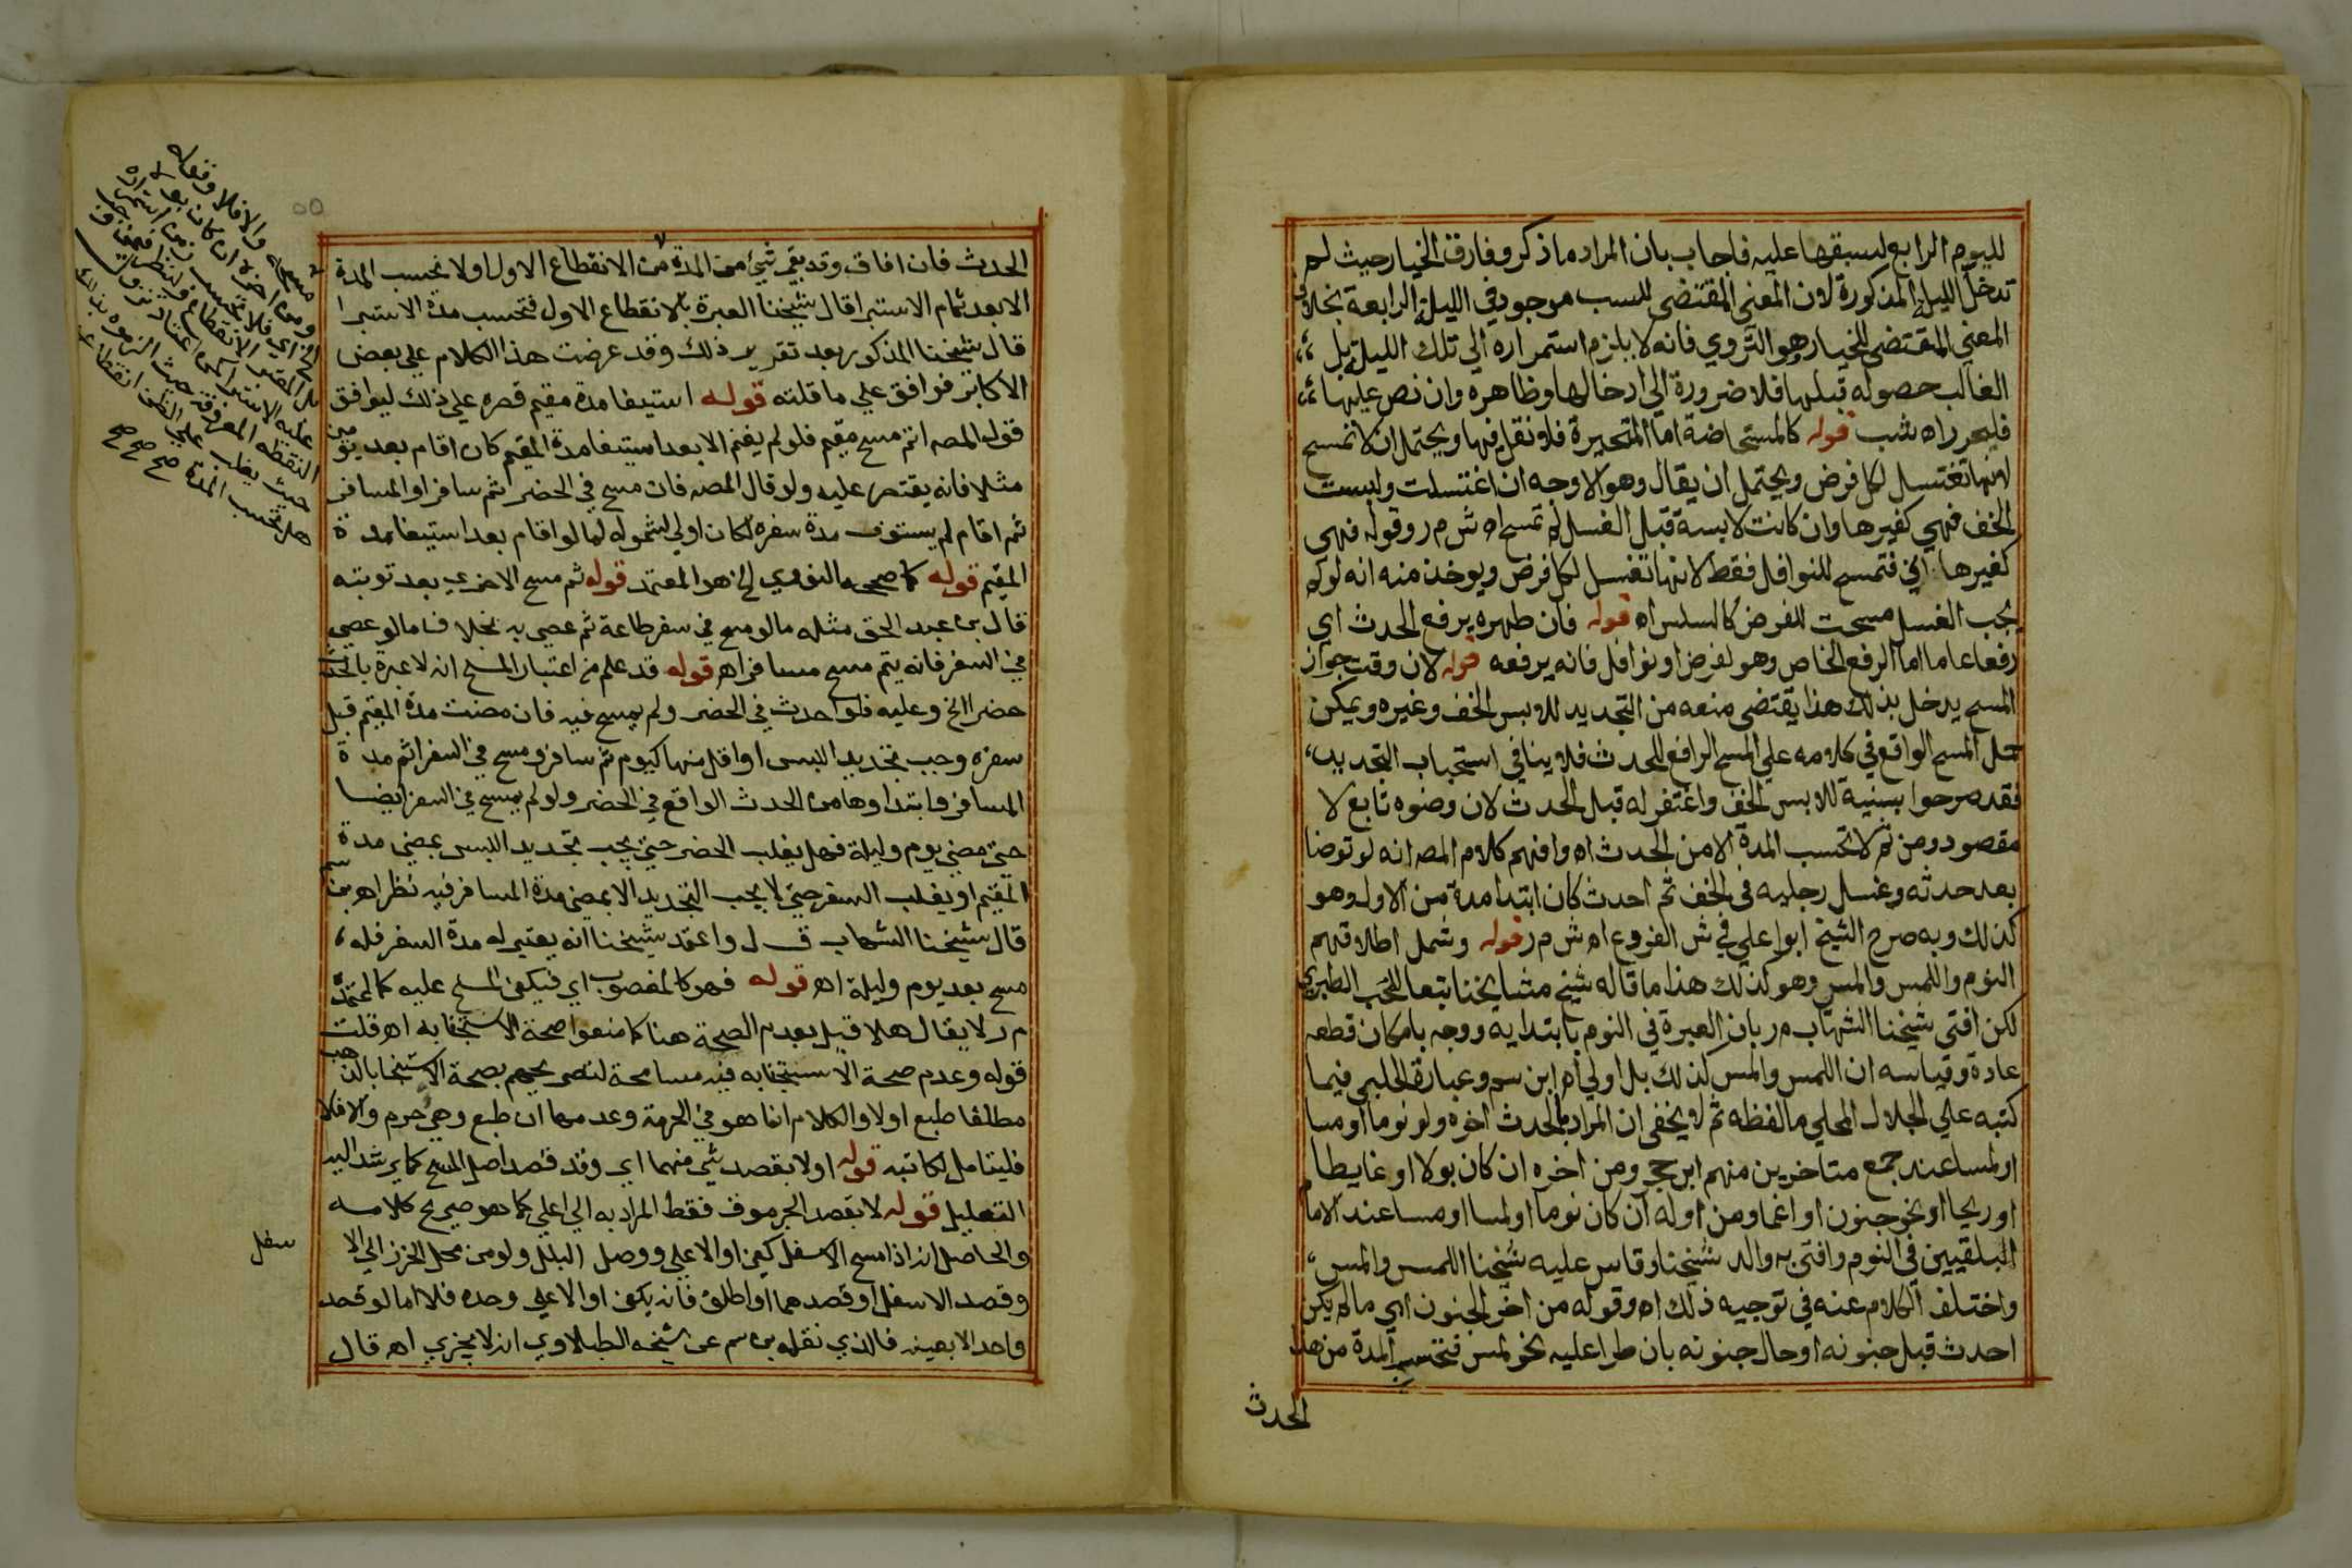 لليوم الرابع لسبقها عليه فاجاب بان المراد ما ذكر وفارق الخيار حيث لم
تدخل الليلة المذكورة لان المعنى المقتضى للسب موجود في الليلة الرابعة بخلاف
المعني المقتضى للخيار وهو التروي فانه لا يلزم استمراره الي تلك الليلة بل
الغالب حصوله قبلها فلا ضرورة الي ادخالها وظاهره وان نص عليها
فليحرر اه شب قوله كالمستحاضة اما المتحيرة فلا نقل فيها ويحتمل ان لا تمسح
لانها تغتسل لكل فرض ويحتمل ان يقال وهو الاوجه ان اغتسلت ولبست
الخف فهي كغيرها وان كانت لابسة قبل الغسل لم تمسح اه ش م ر وقوله فهي
كغيرها اي فتمسح للنوافل فقط لانها تغتسل لكل فرض ويوخذ منه انه لو لم
يجب الغسل مسحت للفرض كالسلس اه قوله فان طهره يرفع الحدث اي
رفعا عاما اما الرفع الخاص وهو لفرض او نوافل فانه يرفعه قوله لان وقت جواز
المسح يدخل بذلك هذا يقتضي منعه من التجديد للابس الخف وغيره ويمكن
حمل المسح الواقع في كلامه علي المسح الرافع للحدث فلا ينافي استحباب التجديد
فقد صرحوا بسنية للابس الخف واغتفر له قبل الحدث لان وضوه تابع لا
مقصود ومن ثم لا تحسب المدة الا من الحدث اه وافهم كلام المصه انه لو توضا
بعد حدثه وغسل رجليه في الخف ثم احدث كان ابتدا مدة من الاول وهو
كذلك وبه صرح الشيخ ابوا علي في ش الفروع اه ش م ر قوله وشمل اطلاقهم
النوم واللمس والمس وهو كذلك هذا ما قاله شيخ مشايخنا تبعا للمحب الطبري
لكن افتي شيخنا الشهاب م ر بان العبرة في النوم بابتدايه ووجه بامكان قطعه
عادة وقياسه ان اللمس والمس كذلك بل اولي اه ابن سم وعبارة الحلبي فيما
كتبه علي الجلال المحلي ما لفظه ثم لا يخفى ان المراد بالحدث اخره ولو نوما او مسا
او لمسا عند جمع متاخرين منهم ابن حجر ومن اخره ان كان بولا او غايطا
او ريحا او نحو جنون او اغما ومن اوله ان كان نوما او لمسا او مسا عند الامام
البلقيين في النوم وافتي به والد شيخنا وقاس عليه شيخنا اللمس والمس
واختلف الكلام عنه في توجيه ذلك اه وقوله من اخر الجنون اي ما لم يكن
احدث قبل جنونه او حال جنونه بان طرا عليه نحو لمس فتحسب المدة من هذا
الحدث
الحدث فان افاق وقد بقي شيء من المدة من الانقطاع الاول او لا تحسب المدة
الا بعد تمام الاستبرا قال شيخنا العبرة بالانقطاع الاول فتحسب مدة الاستبرا
قال شيخنا المذكور بعد تقرير ذلك وقد عرضت هذا الكلام علي بعض
الاكابر فوافق علي ما قلته قوله استيفا مدة مقيم قصره علي ذلك ليوافق
قول المصه اتم مسح مقيم فلو لم يقم الا بعد استيفا مدة المقيم كان اقام بعد يومين
مثلا فانه يقتصر عليه ولو قال المصه فان مسح في الحضر ثم سافر او المسافر
ثم اقام لم يستوف مدة سفره لكان اولي لشموله لما لو اقام بعد استيفا مدة
المقيم قوله كما صححه النووي الخ هو المعتمد قوله ثم مسح الاخري بعد توبته
قال بن عبد الحق مثله ما لو مسح في سفر طاعة ثم عصي به بخلاف ما لو عصي
في السفر فانه يتم مسح مسافر اه قوله قد علم من اعتبار المسح انه لا عبرة بالحدث
حضرا الخ وعليه فلو احدث في الحضر ولم يمسح فيه فان مضت مدة المقيم قبل
سفره وجب تجديد اللبس او اقل منها كيوم ثم سافر ومسح في السفر اتم مدة
المسافر وابتداوها من الحدث الواقع في الحضر ولو لم يمسح في السفر ايضا
حتي مضي يوم وليلة فهل يغلب الحضر حتي يجب تجديد اللبس بمضي مدة
المقيم او يغلب السفر حتي لا يجب التجديد الا بمضي مدة المسافر فيه نظر اه بن سم
قال شيخنا الشهاب ق ل واعتمد شيخنا انه يعتبر له مدة السفر فله
مسح بعد يوم وليلة اه قوله فهو كالمغصوب اي فيكفي المسح عليه كما اعتمده
م ر لا يقال هلا قيل بعدم الصحة هنا كما منعوا صحة الاستنجا به اه قلت
قوله وعدم صحة الاستنجا به فيه مسامحة لتصريحهم بصحة الاستنجا بالذهب
مطلقا طبع او لا والكلام انما هو في الحرمة وعدمها ان طبع وهيء حرم والا فلا
فليتامل لكاتبه قوله او لا بقصد شي منهما اي وقد قصد اصل المسح كما يرشد اليه
التعليل قوله لا بقصد الجرموق فقط المراد به الي اعلي كما هو صريح كلامه
والحاصل انه اذا مسح الاسفل كفي او الاعلي ووصل البلل ولو من محل الخرز الي الاسفل
وقصد الاسفل او قصدهما او اطلق فانه يكفي او الاعلي وحده فلا اما لو قصد
واحد الا بعينه فالذي نقله بن سم عن شيخه الطبلاوي انه لا يجزي اه قال